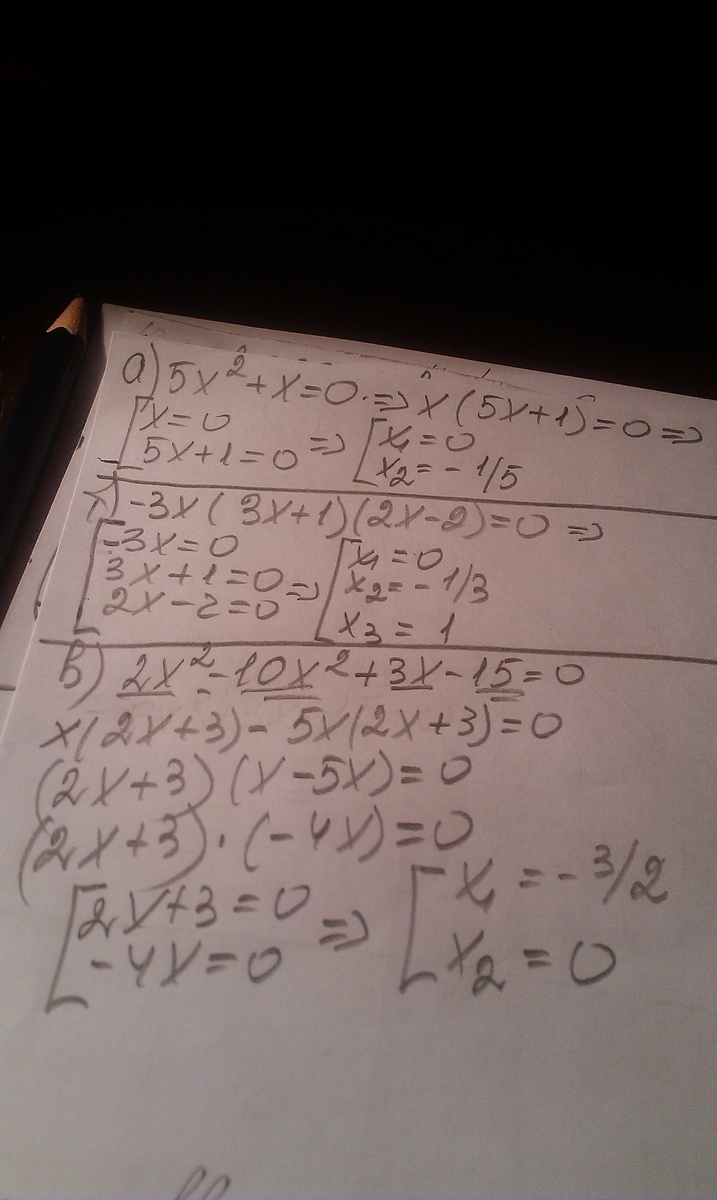 а) 5x² + x = 0 ⇒ x (5x+1) = 0 ⇒
[x = 0
5x+1 = 0 ⇒ [x₁ = 0
x₂ = - 1/5
-3x ( 3x+1)(2x-2) = 0 ⇒
[-3x = 0
3x+1 = 0
2x-2 = 0 ⇒ [x₁ = 0
x₂ = - 1/3
x₃ = 1
в) 2x² - 10x² + 3x - 15 = 0
x(2x+3) - 5x(2x+3) = 0
(2x+3) (x-5x) = 0
(2x+3) · (-4x) = 0
[2x+3 = 0
-4x = 0 ⇒ [x₁ = - 3/2
x₂ = 0